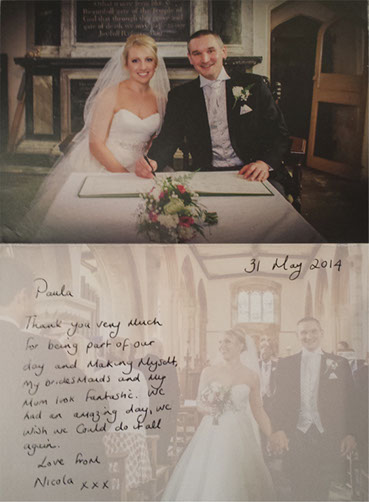 gate of the Temple of
God that through
gate
Joyfull
31 May 2014
Paula
Thank you very Much
for being part of our
day and Making Myself,
My bridesMaids and My
Mum look fantastic. We
had an amazing day, we
wish we could do it all
again.
Love from
Nicola xxx